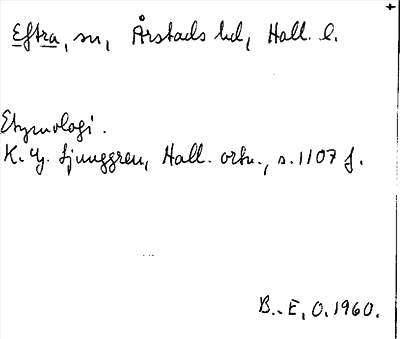 Eftra, sn, Årstads hd, Hall. l.
Etymologi.
K. G. Ljunggren, Hall. ortn., s. 1107 f.
B.-E. O. 1960.